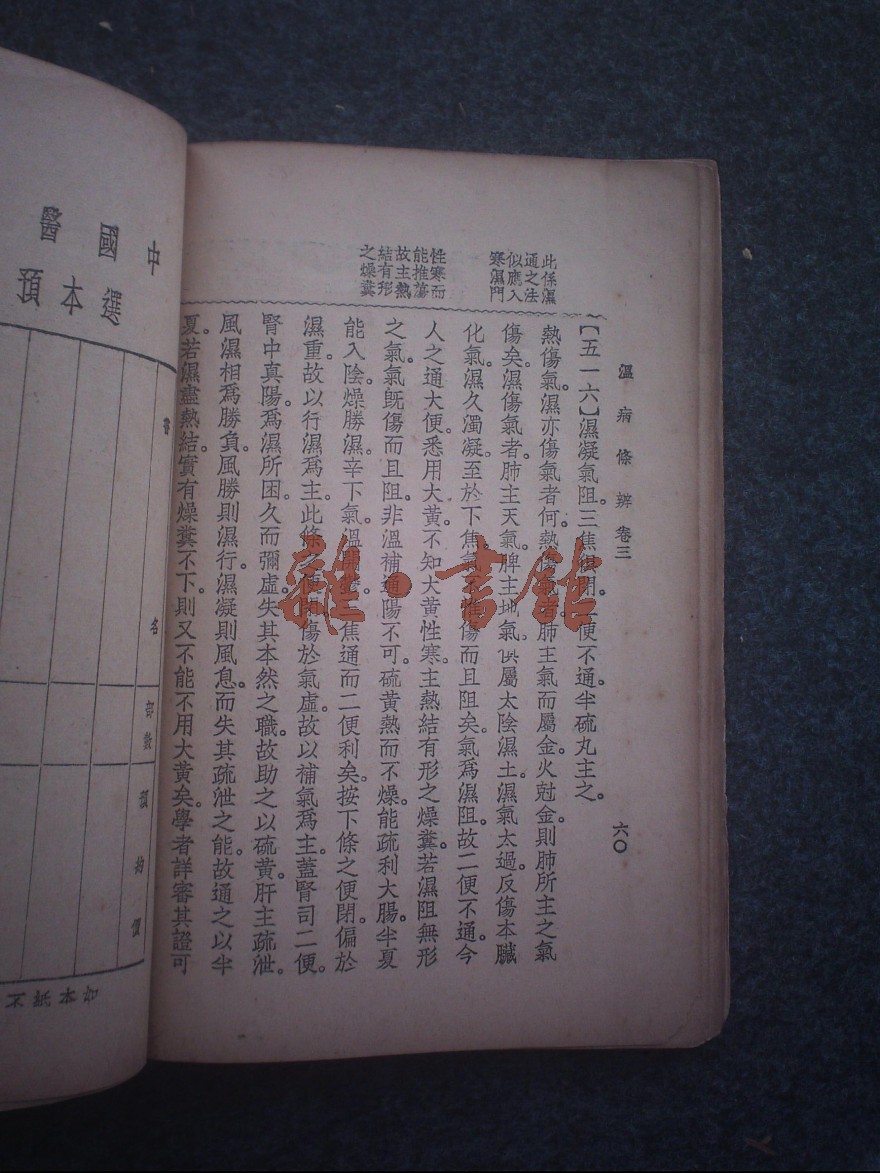 溫病條辨 卷三
六〇
此係濕
通之法
似應入
寒濕門
性寒而
能推蕩
故主熱
結有形
之燥糞
【五一六】濕凝氣阻。三焦俱閉。二便不通。半硫丸主之。
熱傷氣。濕亦傷氣者何。熱傷氣者。肺主氣而屬金。火尅金。則肺所主之氣
傷矣。濕傷氣者。肺主天氣。脾主地氣。俱屬太陰濕土。濕氣太過。反傷本臟
化氣。濕久濁凝。至於下焦。氣不惟傷而且阻矣。氣爲濕阻。故二便不通。今
人之通大便。悉用大黃。不知大黃性寒。主熱結有形之燥糞。若濕阻無形
之氣。氣旣傷而且阻。非溫補通陽不可。硫黃熱而不燥。能疏利大腸。半夏
能入陰。燥勝濕。辛下氣。溫開鬱。三焦通而二便利矣。按下條之便閉。偏於
濕重。故以行濕爲主。此條之便閉。傷於氣虛。故以補氣爲主。蓋腎司二便。
腎中真陽。爲濕所困。久而彌虛。失其本然之職。故助之以硫黃。肝主疏泄。
風濕相爲勝負。風勝則濕行。濕凝則風息。而失其疏泄之能。故通之以半
夏。若濕盡熱結。實有燥糞不下。則又不能不用大黃矣。學者詳審其證可
中國醫
選本預
書
名
部數
預約價
雜·書館